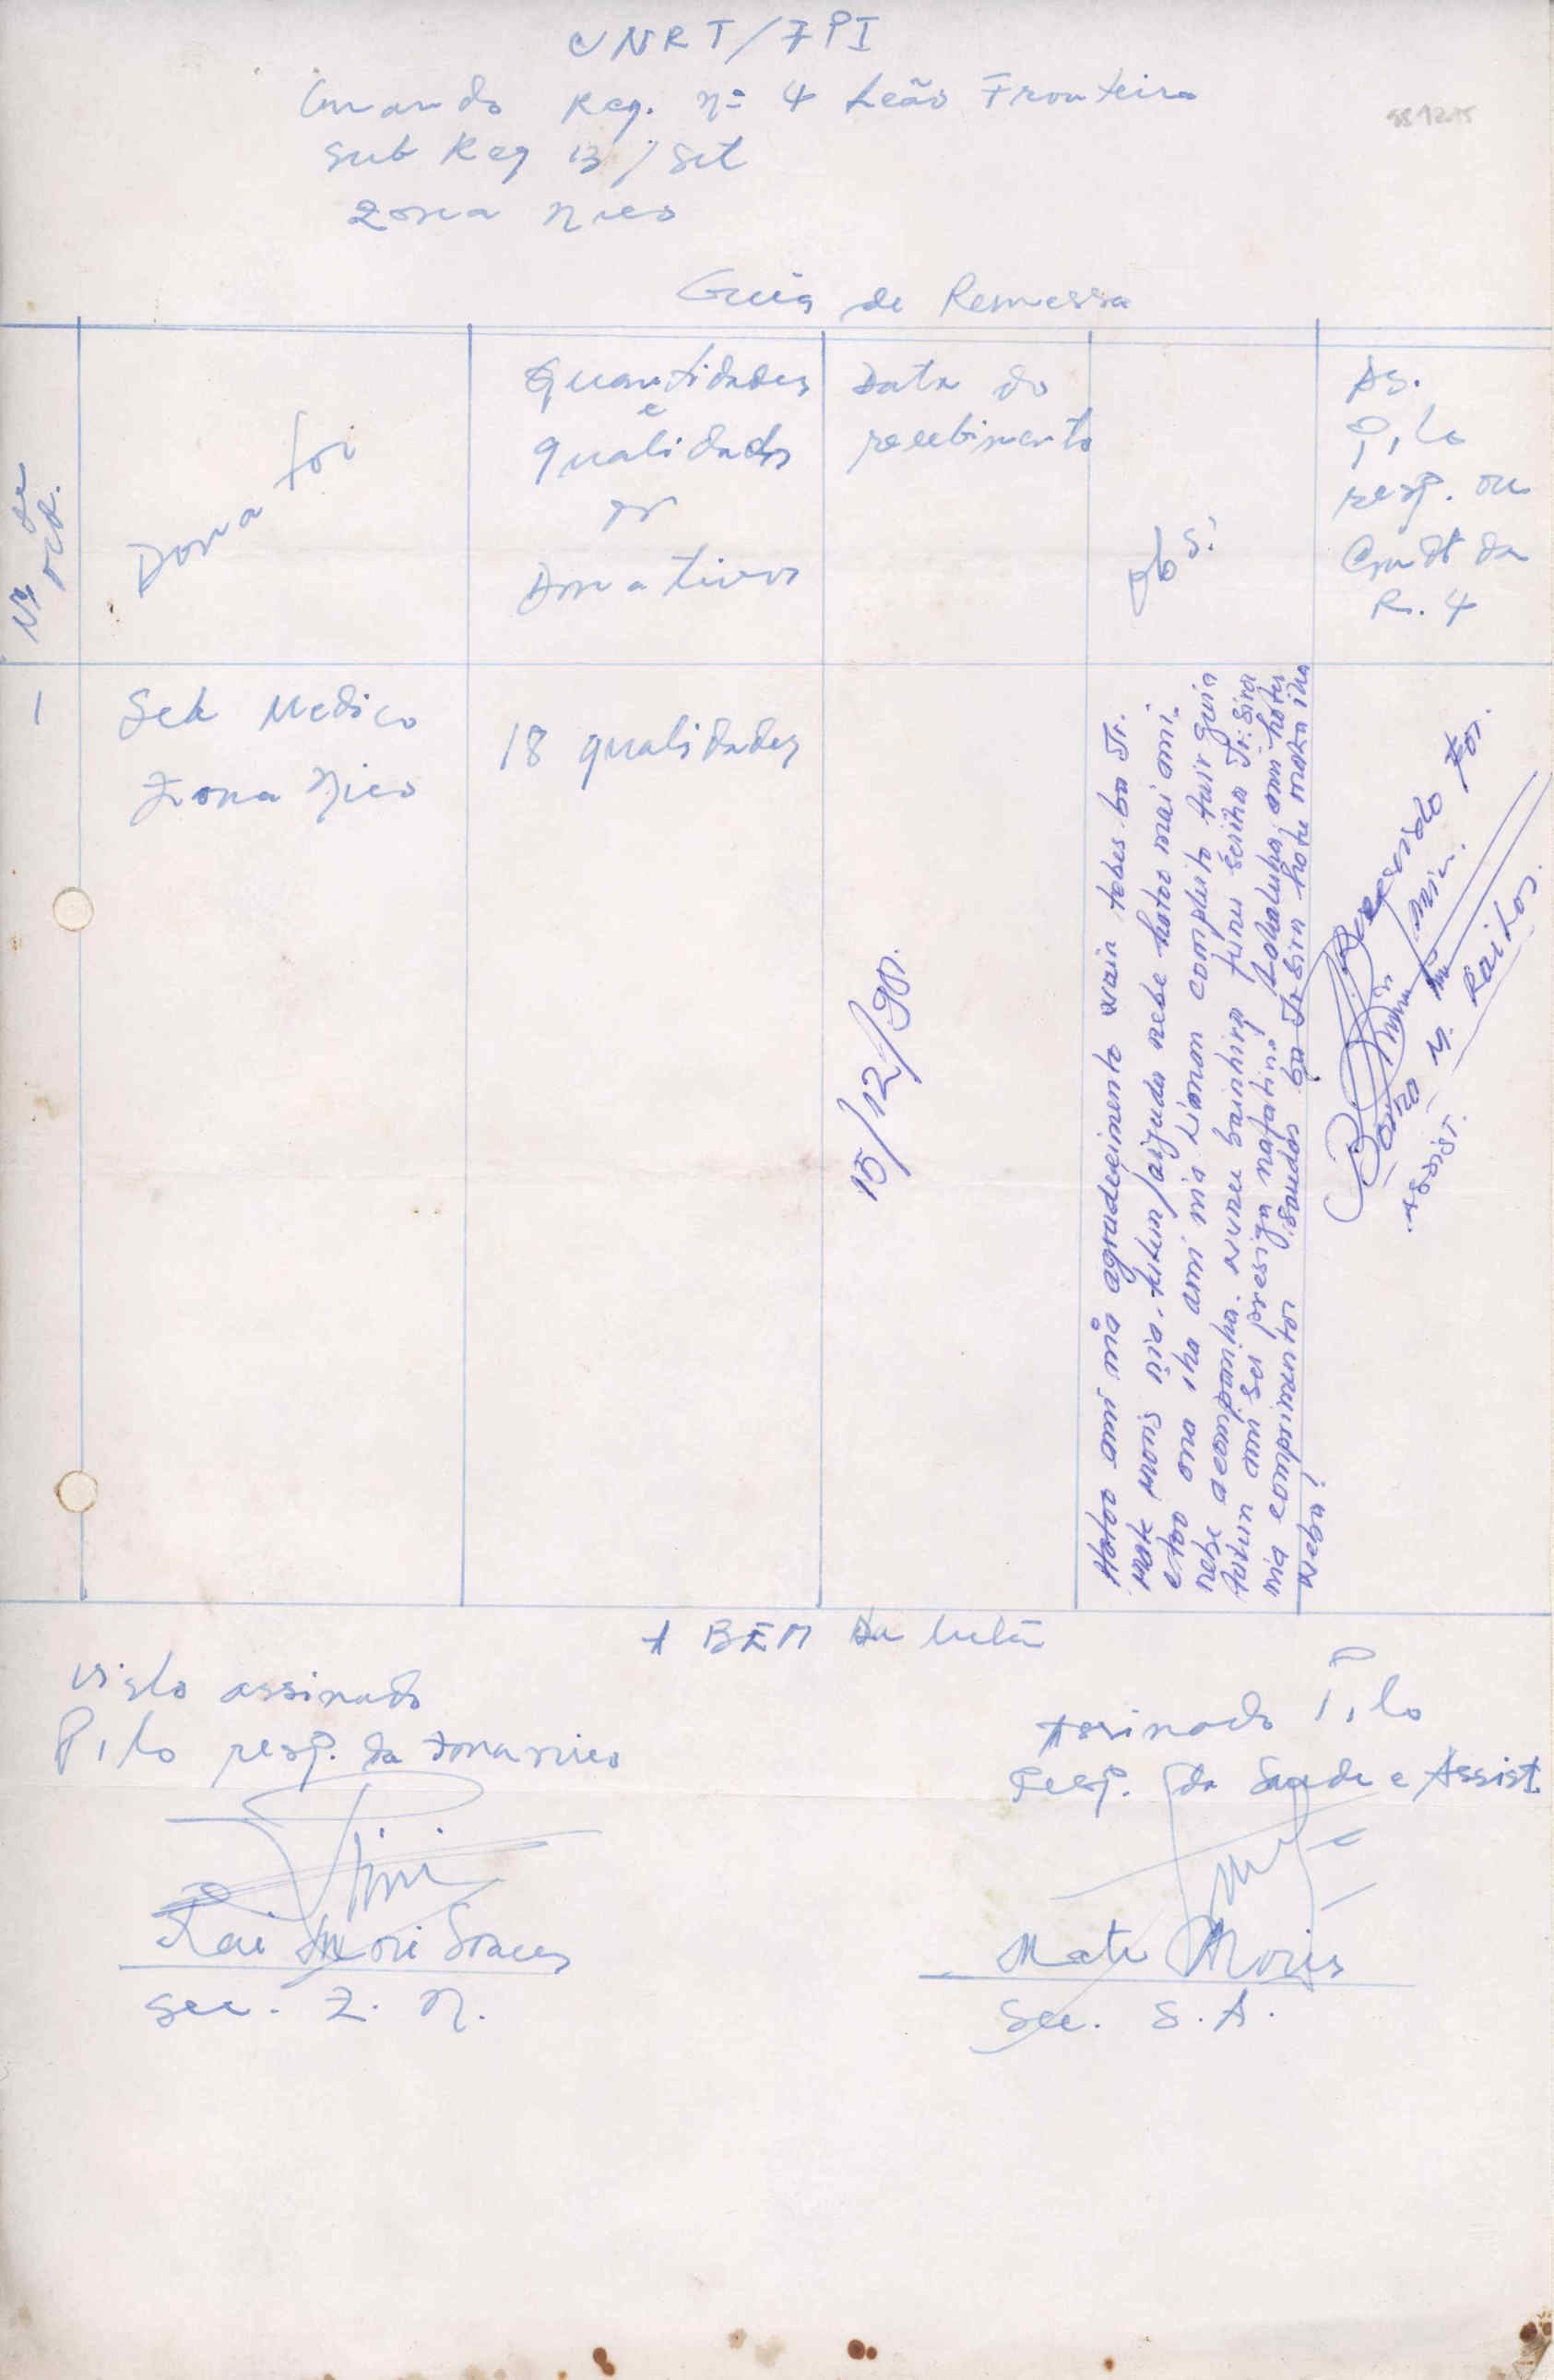 CNRT/FPI
Comando Reg. nº 4 Leão Fronteira
Sub Reg 13/Set
Zona Nico
Guia de Remessa
Nº de ord.
Donator
Quantidades
e
qualidades
Donativos
Data do
recebimento
Obs.
As.
P, lo
resp. ou
Cmdt da
R. 4
1
Sek Medico
Zona Nico
18 qualidades
15/12/98.
Hatoo ami nia agradecimento wain tebes ba Jr.
Mate Moris nia. tulun/aijuda nebe hatoo mai ami.
etoo ona iha ami nia liman completo tuir guia
nebe acompanha. Nunee bainhira funu seiha Jr. Sira
tulun ami sei presiza nafatin. ami hotu
nia comprimentos Saudos ba Jr Sira hotu maka iha
neba!
Assist.
Railos.
A BEM da luta
Visto assinado
P, lo resp. da Zona nico
Assinado P, lo
Resp. da Saude e Assist.
Soares
Sec. Z. N.
Mate Moris
Sec. S. A.